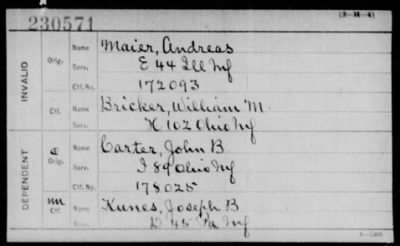 230571
(3-M-4)
INVALID
Orig.
Name
Maier, Andreas
Serv.
E 44 Ill Inf
Ctf. No.
172093
Ctf.
Name
Bricker, William M.
Serv.
H 102 Ohio Inf
DEPENDENT
Orig.
Name
Carter, John B
Serv.
I 89 Ohio Inf
Ctf. No.
178025
Ctf.
Name
Kunes, Joseph B
Serv.
D 45 Pa Inf